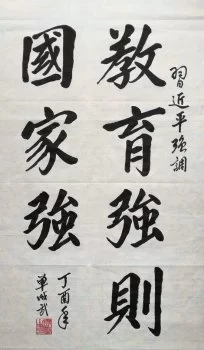 習近平強調
教育強則
國家強
丁酉年